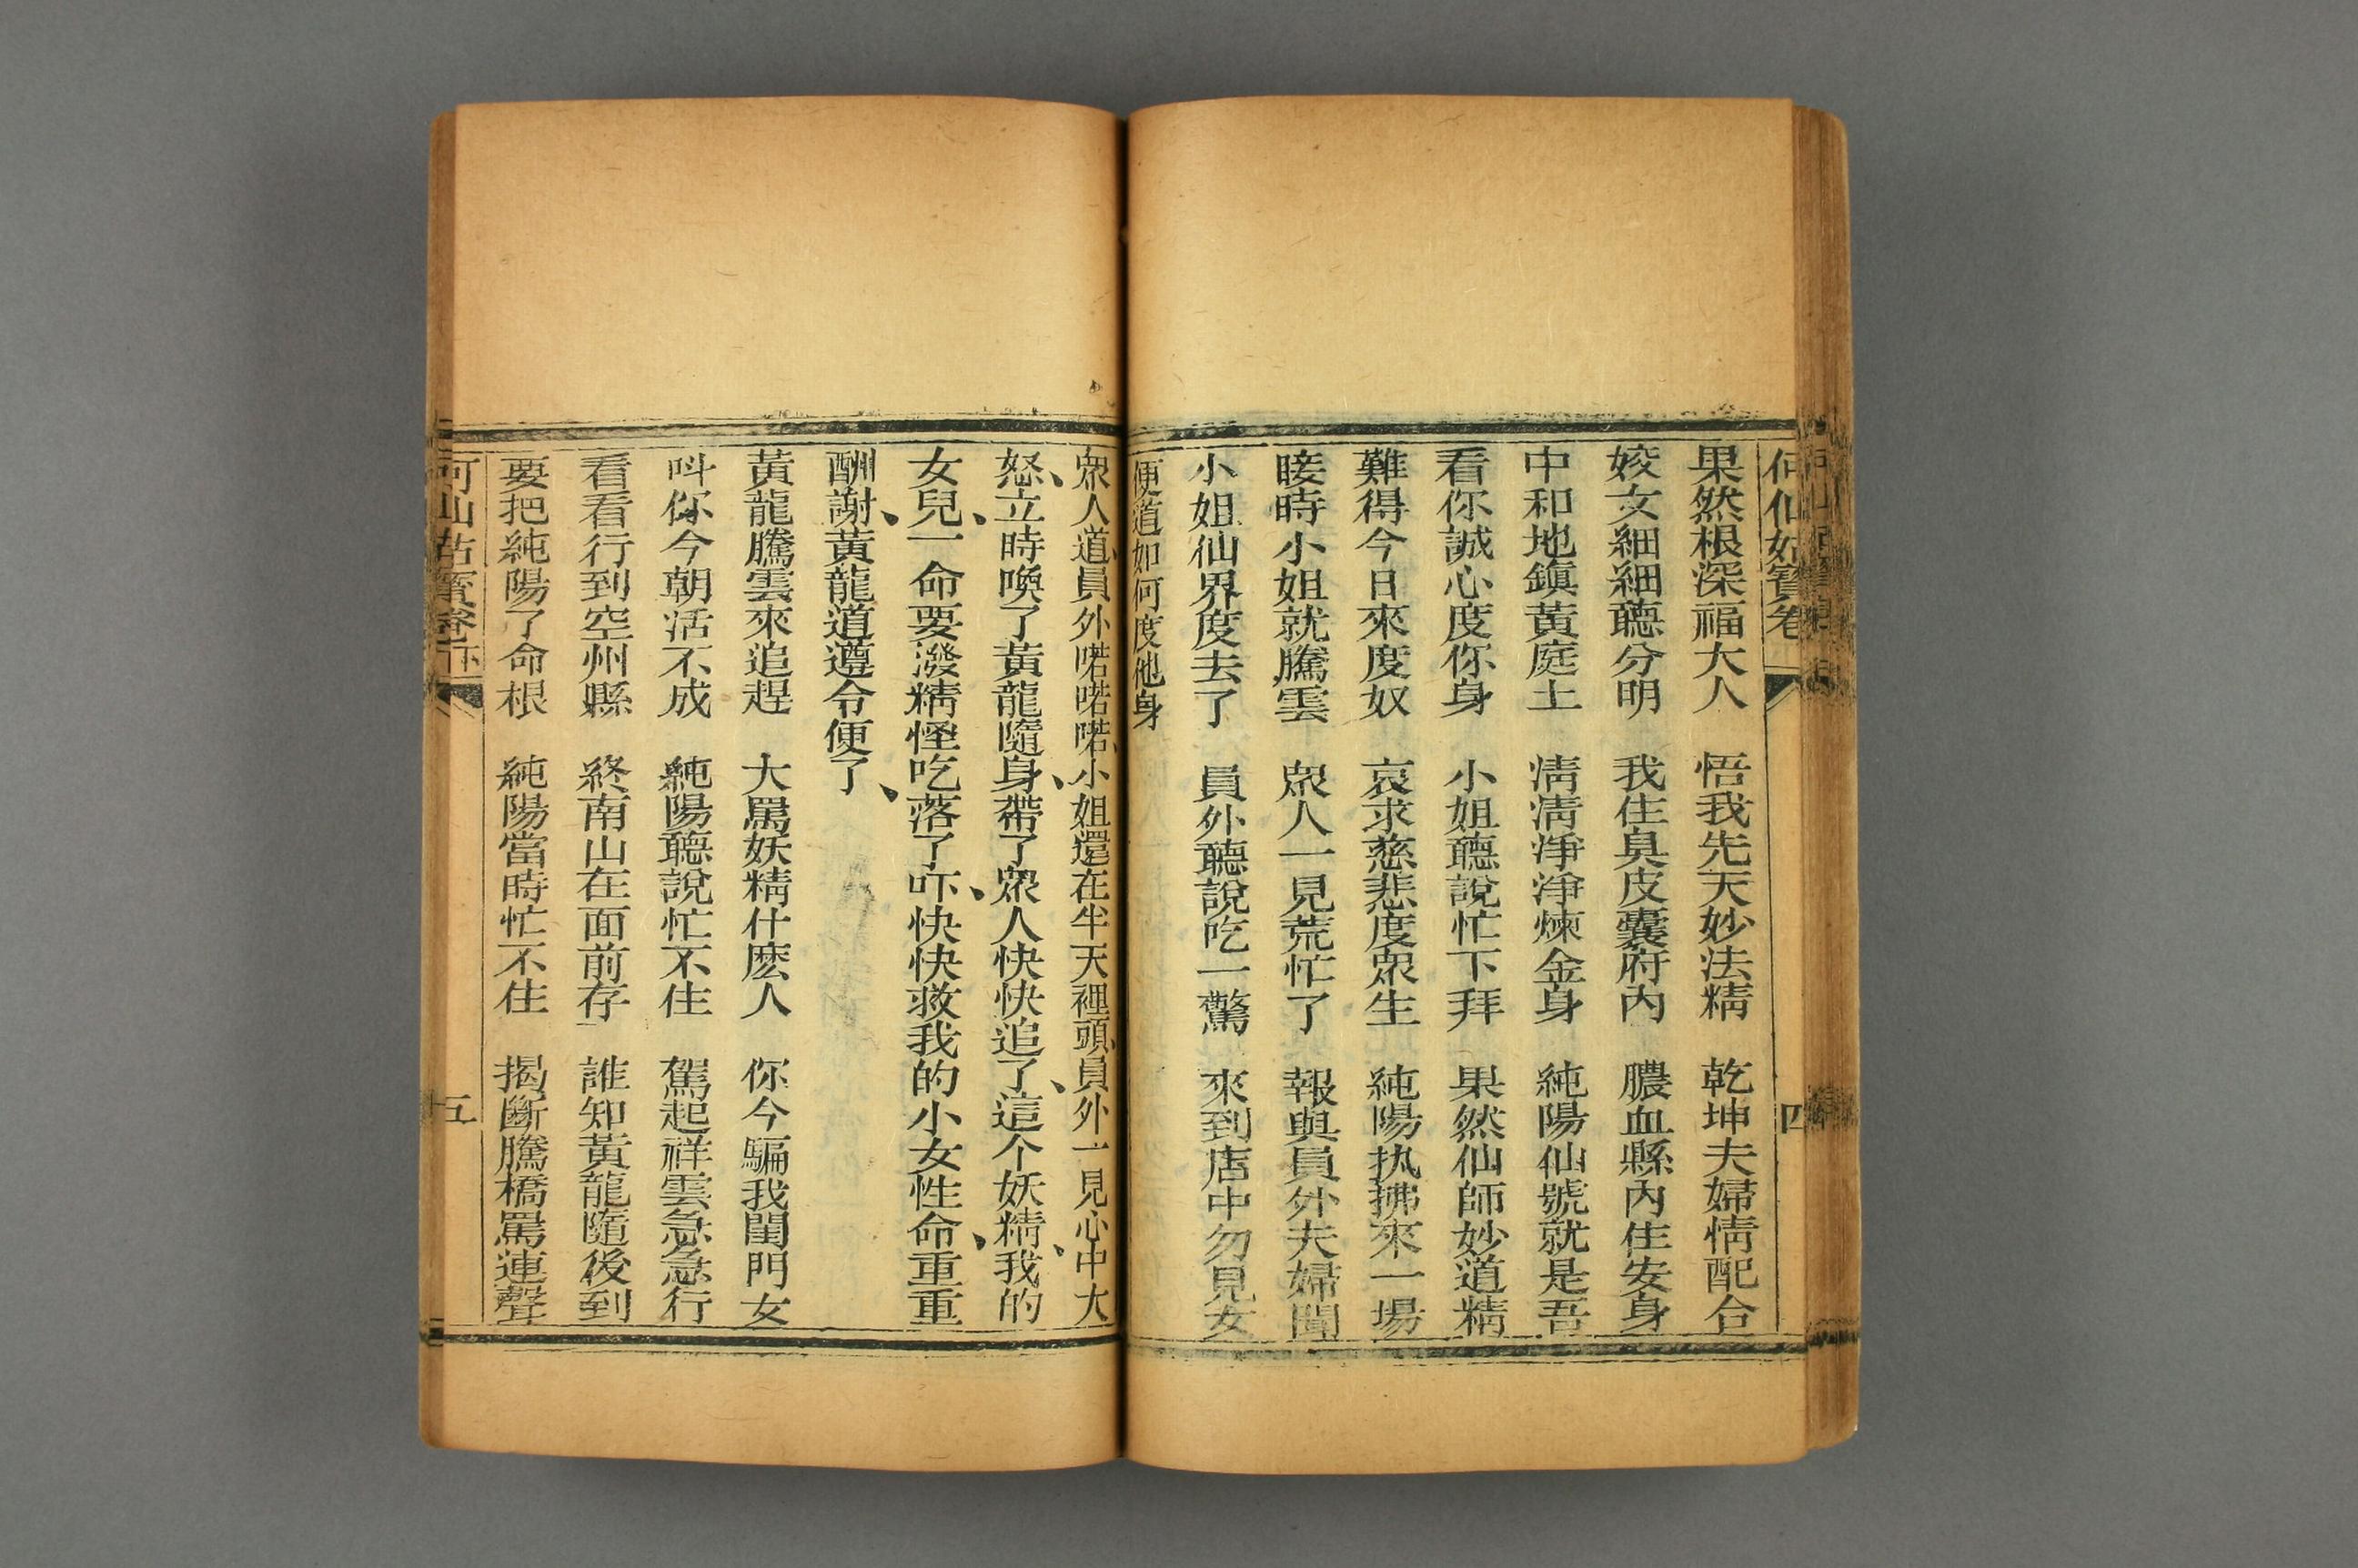 何仙姑寳卷
四
果然根深福大人　悟我先天妙法精　乾坤夫婦情配合
姣女細細聽分明　我住臭皮囊府內　膿血縣內住安身
中和地鎮黃庭土　清清淨淨煉金身　純陽仙號就是吾
看你誠心度你身　小姐聽說忙下拜　果然仙師妙道精
難得今日來度奴　哀求慈悲度衆生　純陽执拂來一場
小姐就騰雲　衆人一見荒忙了　報與員外夫婦聞
小姐仙界度去了　員外聽說吃一驚　來到店中勿見女
便道如何度他身
衆人道、員外喏喏喏、小姐還在半天裡頭、員外一見心中大
怒、立時喚了黃龍隨身、帶了衆人快快追了、這个妖精、我的
女兒、一命要潑精怪吃落了吓、快快救我的小女性命、重重
酬謝、黃龍道遵令便了、
黃龍騰雲來追趕　大罵妖精什麽人　你今騙我閨門女
呌你今朝活不成　純陽聽說忙不住　駕起祥雲急急行
看看行到空州縣　終南山在面前存　誰知黃龍隨後到
要把純陽了命根　純陽當時忙不住　揭斷騰橋罵連聲
何仙姑寳卷下
五